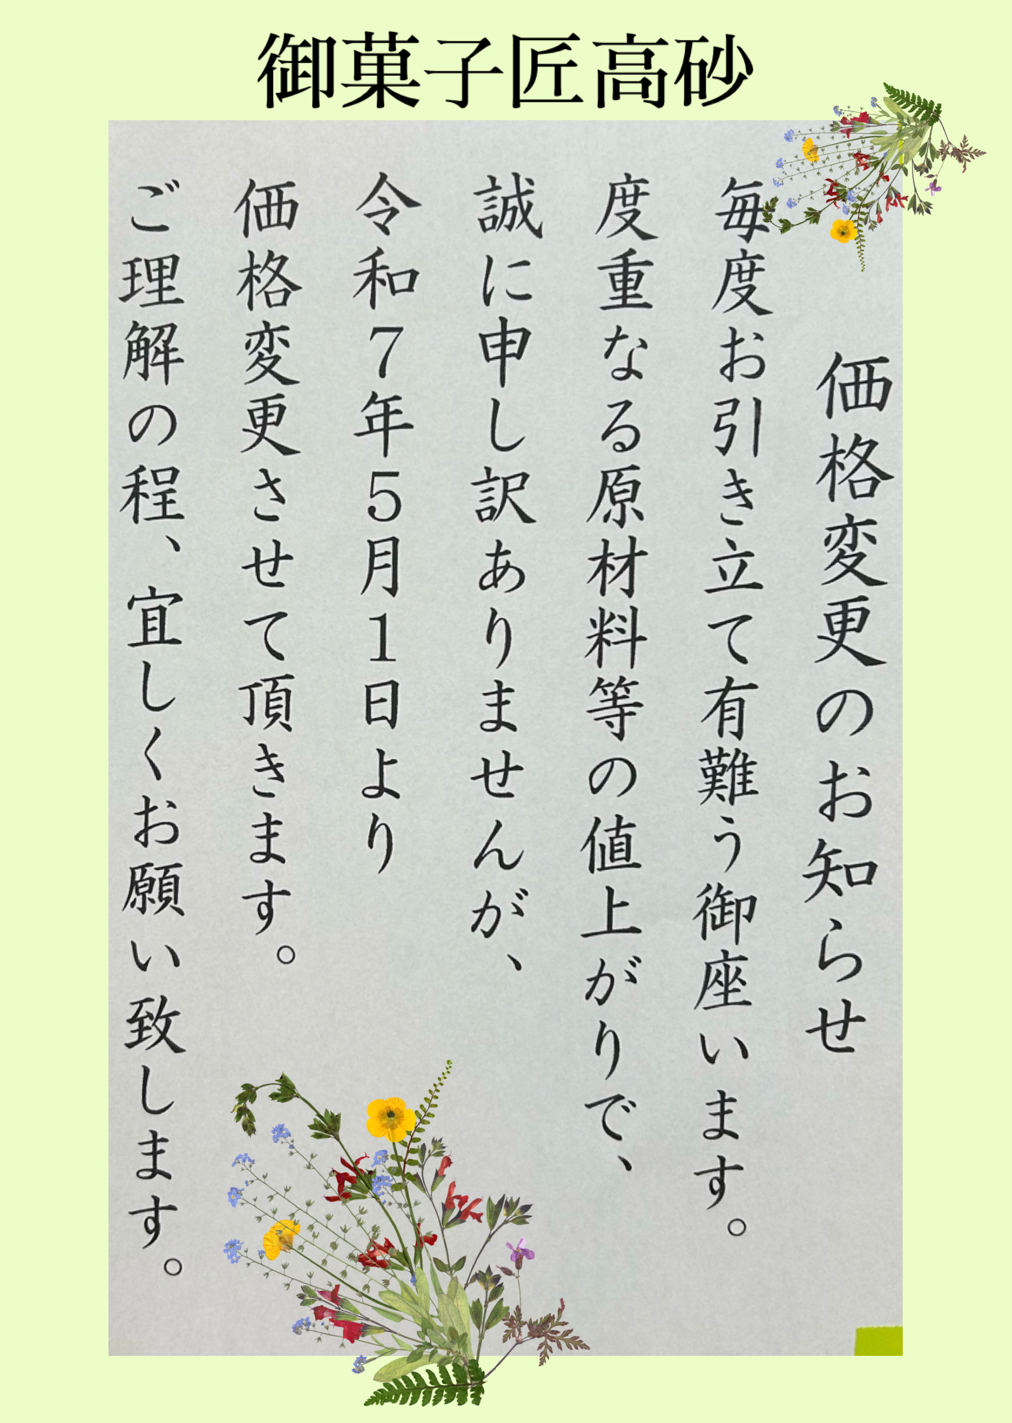 御菓子匠高砂
価格変更のお知らせ
毎度お引き立て有難う御座います。
度重なる原材料等の値上がりで、
誠に申し訳ありませんが、
令和7年5月1日より
価格変更させて頂きます。
ご理解の程、宜しくお願い致します。